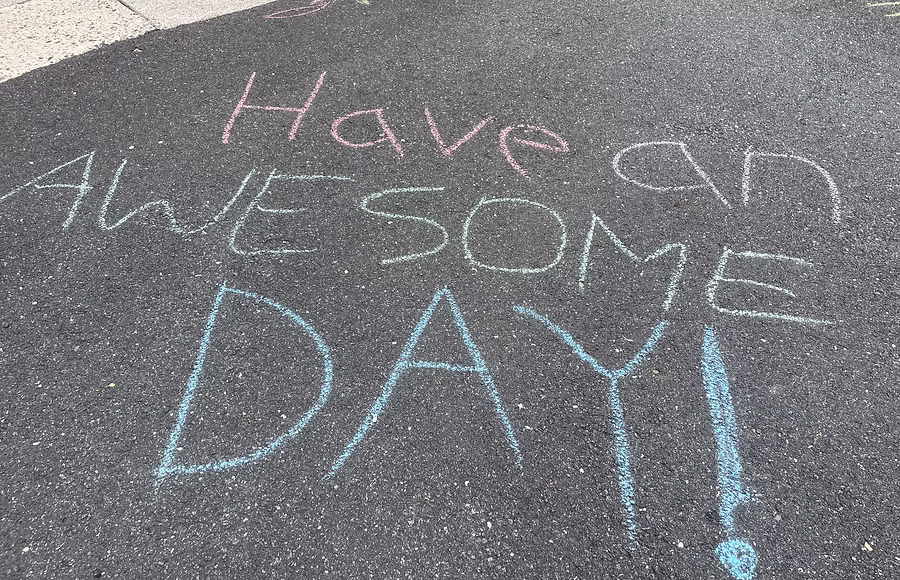 Have an
AWESOME
DAY!